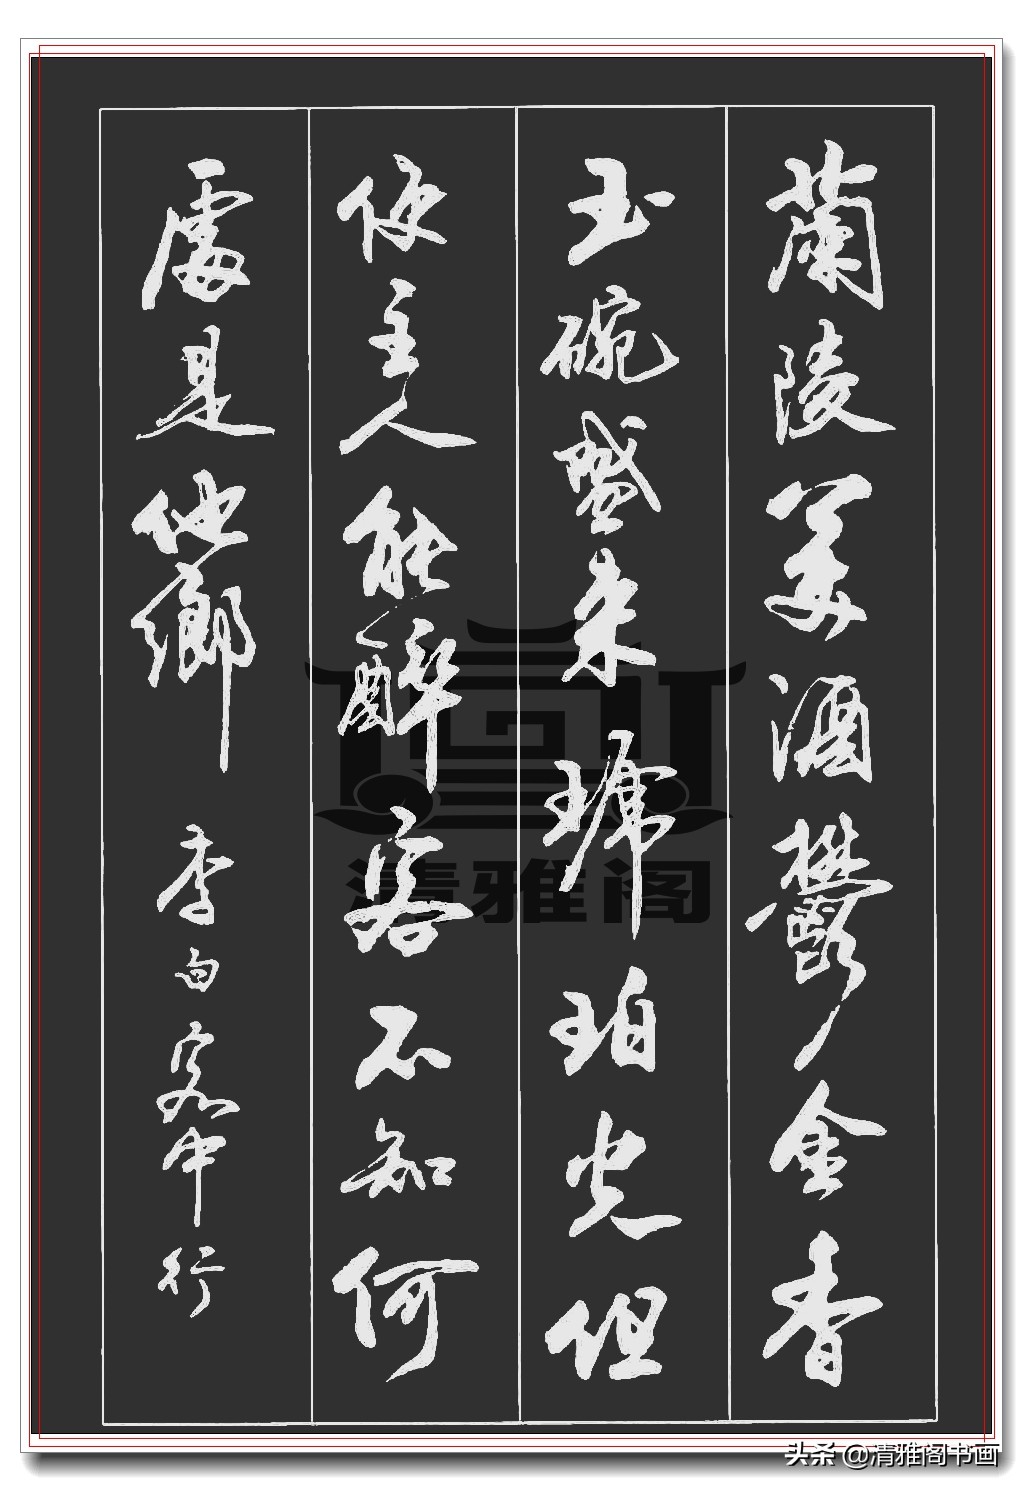 蘭陵美酒鬱金香
玉碗盛来琥珀光但
使主人能醉客不知何
處是他鄉 李白客中行
清雅阁
头条 @清雅阁书画